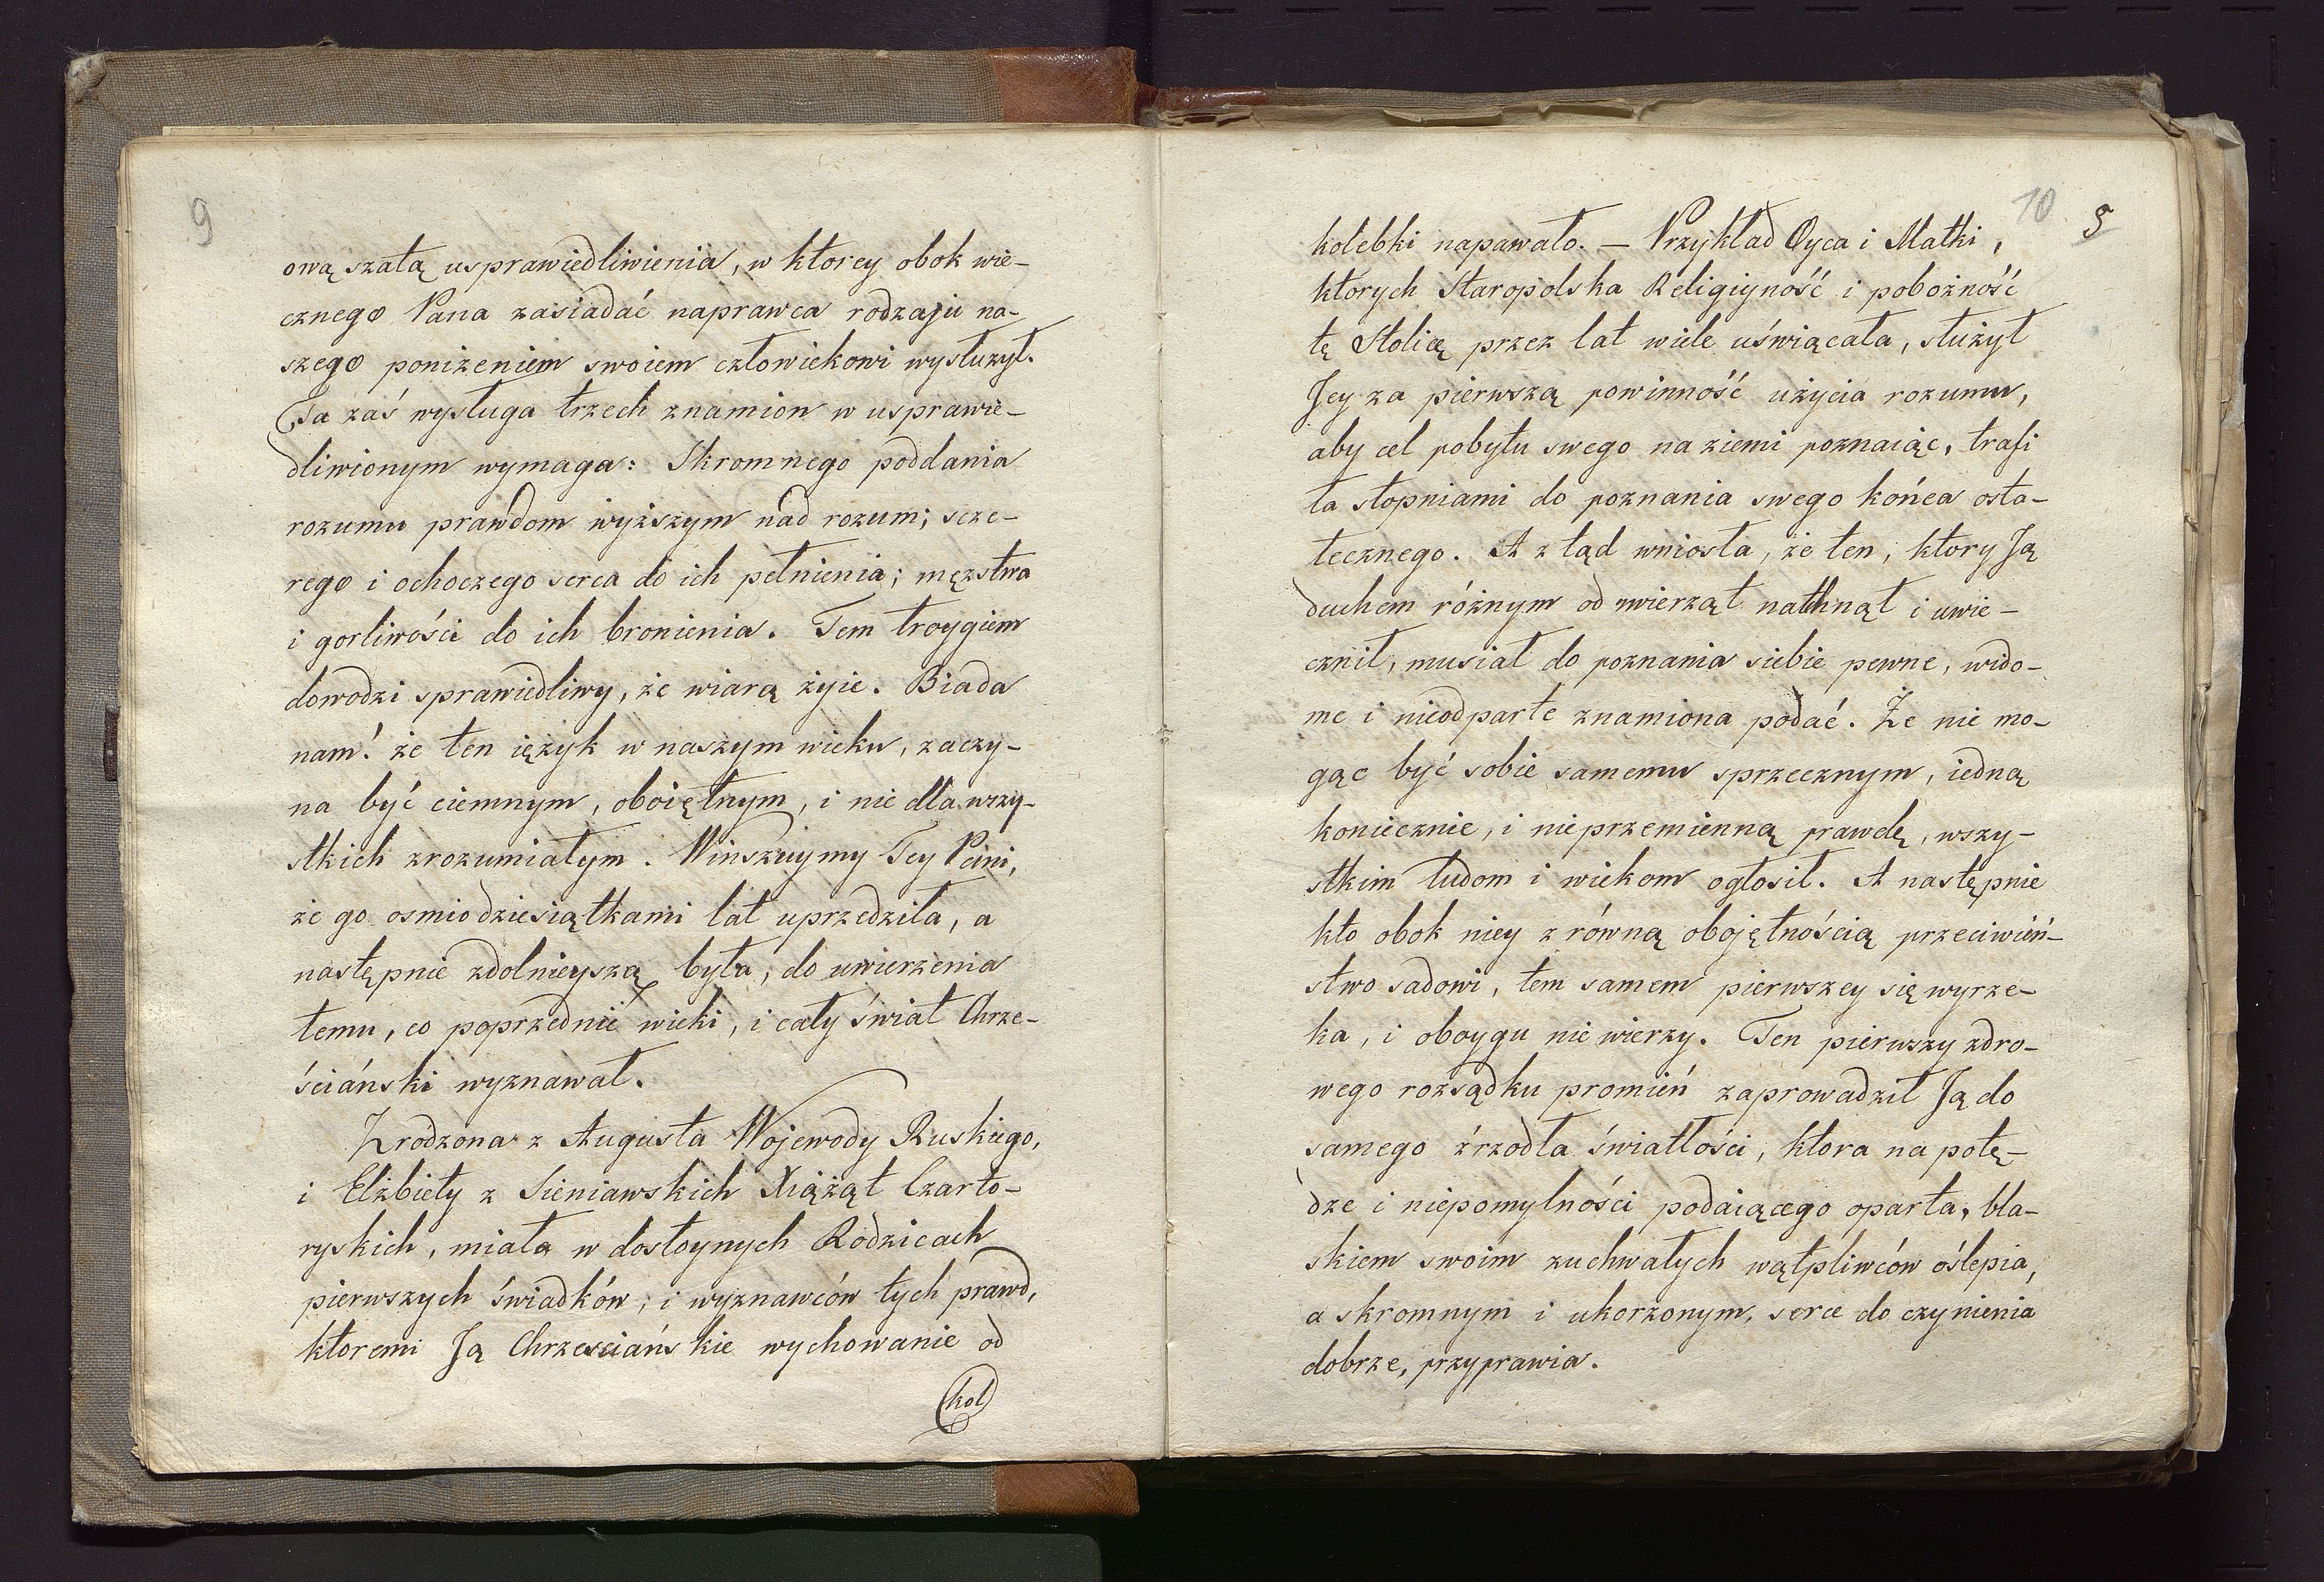 9
ową szatą usprawiedliwienia, w ktorey obok wie-
cznego Pana zasiadać naprawca rodzaju na-
szego poniżeniem swoiem człowiekowi wysłużył.
Ta zaś wysługa trzech znamion w usprawie-
dliwionym wymaga: Skromnego poddania
rozumu prawdom wyższym nad rozum; scze-
rego i ochoczego serca do ich pełnienia; męzstwa
i gorliwości do ich bronienia. Tem troygiem
dowodzi sprawiedliwy, że wiarą żyie. Biada
nam! że ten ięzyk w naszym wieku, zaczy-
na być ciemnym, oboiętnym, i nie dla wszy-
stkich zrozumiałym. Winszuymy Tey Pani,
że go osmiodziesiątkami lat uprzedziła, a
następnie zdolnieyszą była, do uwierzenia
temu, co poprzednie wieki, i cały świat Chrze-
ściański wyznawał.
Zrodzona z Augusta Wojewody Ruskiego,
i Elżbiety z Sieniawskich Xiążąt Czarto-
ryskich, miała w dostoynych Rodzicach
pierwszych świadków, i wyznawców tych prawd,
ktoremi Ją Chrzesciańskie wychowanie od
kol
10
5
kolebki napawało. — Przykład Oyca i Matki,
ktorych Staropolska Religiyność i pobożność
tę Stolicę przez lat wiele uświącała, służył
Jey za pierwszą powinność użycia rozumu,
aby cel pobytu swego na ziemi poznaiąc, trafi
ła stopniami do poznania swego końca osta-
tecznego. A ztąd wniosła, że ten, ktory Ją
duchem różnym od zwierząt nathnął i uwie-
cznił, musiał do poznania siebie pewne, wido-
me i nieodparte znamiona podać. Że nie mo-
gąc być sobie samemu sprzecznym, iedną
koniecznie, i nieprzemienną prawdę, wszy-
stkim ludom i wiekom ogłosił. A następnie
kto obok niey z równą obojętnością przeciwień-
stwo sadowi, tem samem pierwszey się wyrze-
ka, i oboygu nie wierzy. Ten pierwszy zdro-
wego rozsądku promień zaprowadził Ją do
samego źrzodła światłości, ktora na potę-
dze i niepomylności podaiącego oparta, bla-
skiem swoim zuchwałych wątpliwców oślepia,
a skromnym i ukorzonym, serce do czynienia
dobrze, przyprawia.